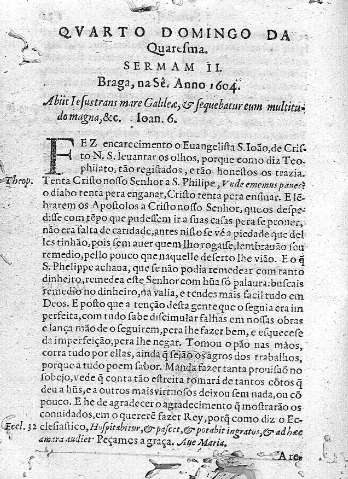 QVARTO DOMINGO DA
Quaresma.
SERMAM II.
Braga, na Sê. Anno 1604.
Abijt Iesus trans mare Galileæ, & sequebatur eum multitu-
do magna, &c. Ioan. 6.
FEZ encarecimento o Euangelista S. Ioão, de Cris-
to N. S. leuantar os olhos, porque como diz Teo-
philato, tão registados, e tão honestos os trazia.
Theop.
Tenta Cristo nosso Senhor a S. Philipe, Vnde ememus panes? q̃
o diabo tenta pera enganar, Cristo tenta pera ensinar. E lẽ-
brarem os Apostolos a Cristo nosso Senhor, que os despe-
disse com tẽpo que pudessem ir a suas casas pera se prouer,
não era falta de caridade, antes nisto se vé a piedade que del
les tinhão, pois sem auer quem lho rogasse, lembrauão seu
remedio, pello pouco que naquelle deserto lhe vião. E o q̃
S. Phelippe achaua, que se não podia remedear com tanto
dinheiro, remedea este Senhor com hũa só palaura: buscais
remedio no dinheiro, da valia, e tendes mais facil tudo em
Deos. E posto que a tenção desta gente que o seguia era im
perfeita, com tudo sabe dissimular falhas em nossas obras
e lança mão de o seguirem, pera lhe fazer bem, e esquecese
da imperfeição, pera lhe negar. Tomou o pão nas mãos,
corra tudo por ellas, ainda q̃ sejão os agros dos trabalhos,
porque a tudo poem sabor. Manda fazer tanta prouisaõ no
sobejo, vede q̃ conta tão estreita tomará de tantos cõtos q̃
deu a hũs, e a outros mais virtuosos deixou sem nada, ou cõ
pouco. E he de agradecer o agradecimento q̃ mostrarão os
conuidados, em o quererẽ fazer Rey, porq̃ como diz o Ec-
Eccl. 32
clesiastico, Hospitabitur, & pascet, & potabit ingratos, & ad hæc
amara audiet. Peçamos a graça. Aue Maria,
Are-